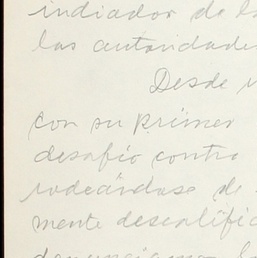 indiador de la
las autoridade
Desde
con su primer
desafío contra
rodeándose de
mente descalific
denunciamo la